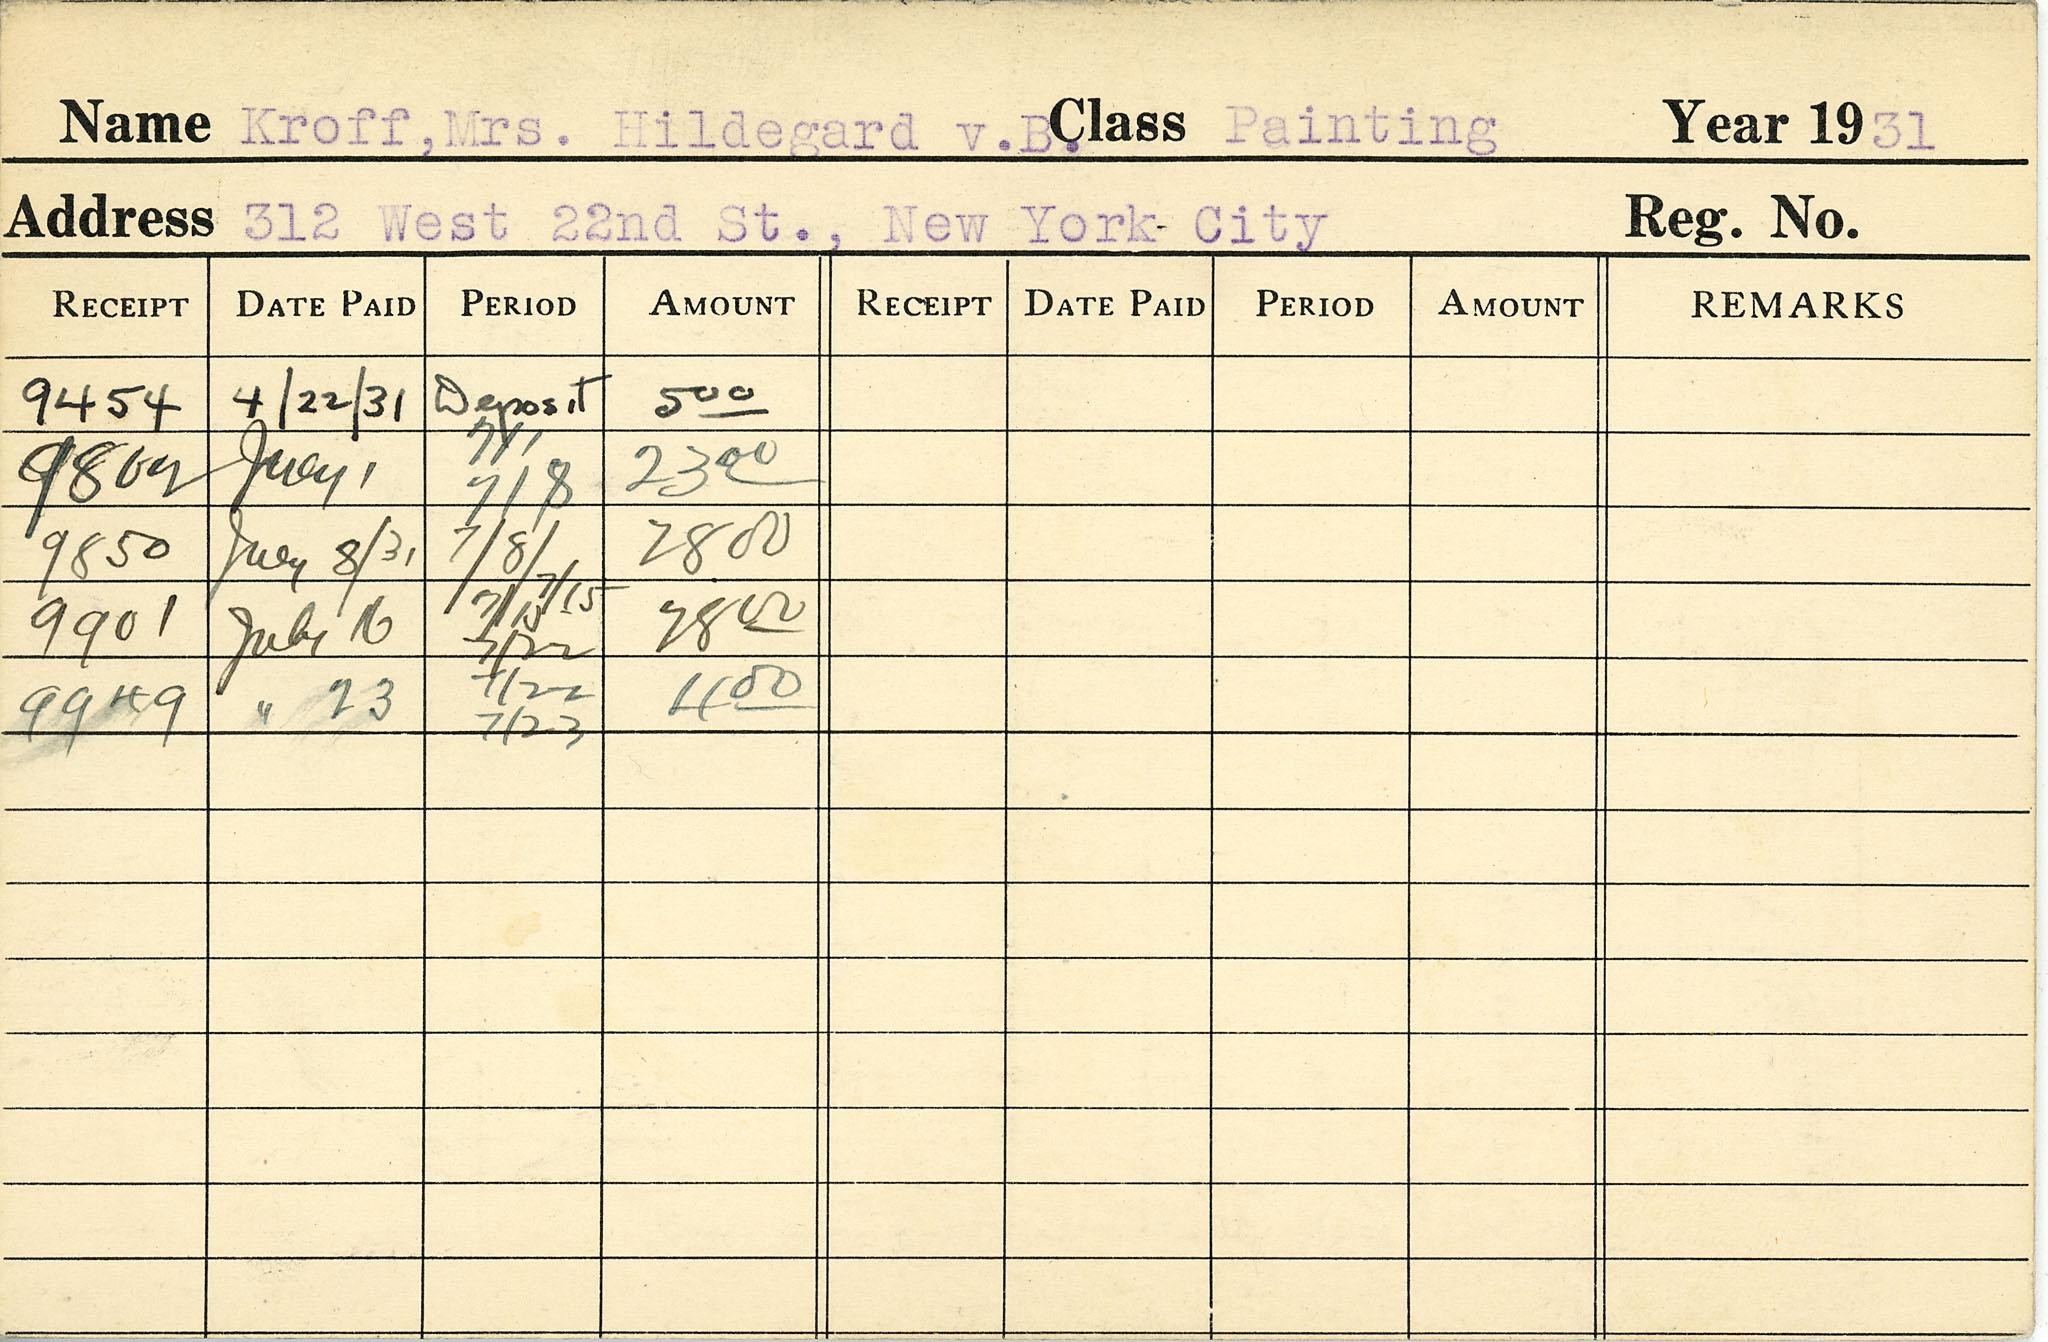 Name Kroff,Mrs. Hildegard v.B. Class Painting Year 1931
Address 312 West 22nd St., New York City Reg. No.
RECEIPT DATE PAID PERIOD AMOUNT RECEIPT DATE PAID PERIOD AMOUNT REMARKS
9454 4/22/31 Deposit 5 00
July 1 7/1 7/8 23 00
9850 July 8/31 7/8/ 7/15 28 00
9901 July 16 7/15 7/22 28 00
9949 " 23 7/22 7/23 4 00